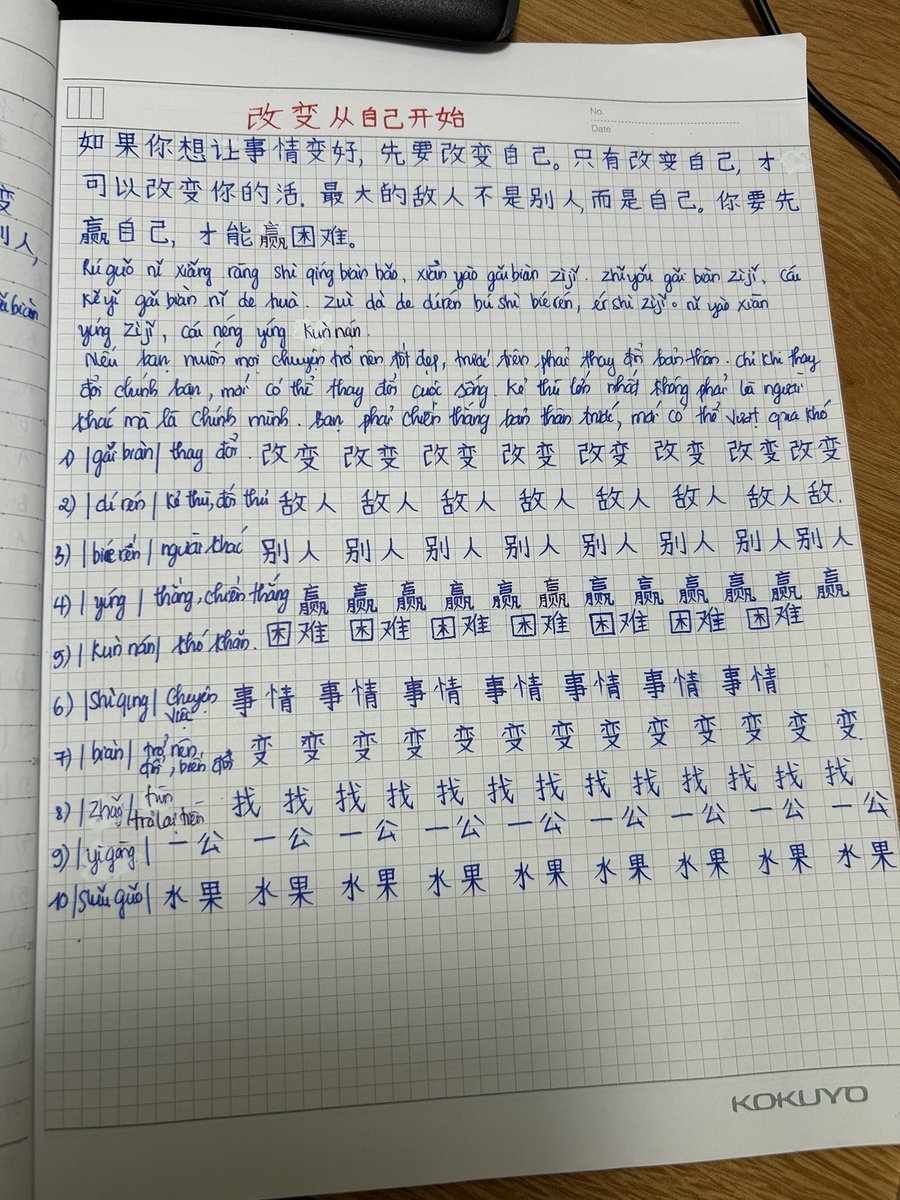 改变从自己开始
No.
Date
如果你想让事情变好, 先要改变自己。只有改变自己, 才
可以改变你的活. 最大的敌人不是别人, 而是自己。你要先
赢自己, 才能赢困难。
Rú guǒ nǐ xiǎng ràng shì qíng biàn hǎo, xiān yào gǎi biàn zì jǐ. zhǐ yǒu gǎi biàn zì jǐ, cái
kě yǐ gǎi biàn nǐ de huà. Zuì dà de dí rén bú shì bié rén, ér shì zì jǐ. nǐ yào xiān
yíng zì jǐ, cái néng yíng kùn nán.
Nếu bạn muốn mọi chuyện trở nên tốt đẹp, trước tiên phải thay đổi bản thân. Chỉ khi thay
đổi chính bạn, mới có thể thay đổi cuộc sống. Kẻ thù lớn nhất không phải là người
khác mà là chính mình. Bạn phải chiến thắng bản thân trước, mới có thể vượt qua khó
1) |gǎi biàn| thay đổi. 改变 改变 改变 改变 改变 改变 改变 改变
2) |dí rén| kẻ thù, đối thủ 敌人 敌人 敌人 敌人 敌人 敌人 敌人 敌.
3) |bié rén| người khác 别人 别人 别人 别人 别人 别人 别人 别人
4) |yíng| thắng, chiến thắng 赢 赢 赢 赢 赢 赢 赢 赢 赢 赢 赢 赢
5) |kùn nán| khó khăn. 困难 困难 困难 困难 困难 困难 困难
6) |Shì qing| chuyện việc 事情 事情 事情 事情 事情 事情 事情
7) |biàn| trở nên, đổi, biến đổi 变 变 变 变 变 变 变 变 变 变 变 变 变
8) |Zhǎo| tìm trả lại tiền 找 找 找 找 找 找 找 找 找 找 找 找 找
9) |yī gōng| 一公 一公 一公 一公 一公 一公 一公 一公 一公
10 |Shuǐ guǒ| 水果 水果 水果 水果 水果 水果 水果 水果 水果
KOKUYO